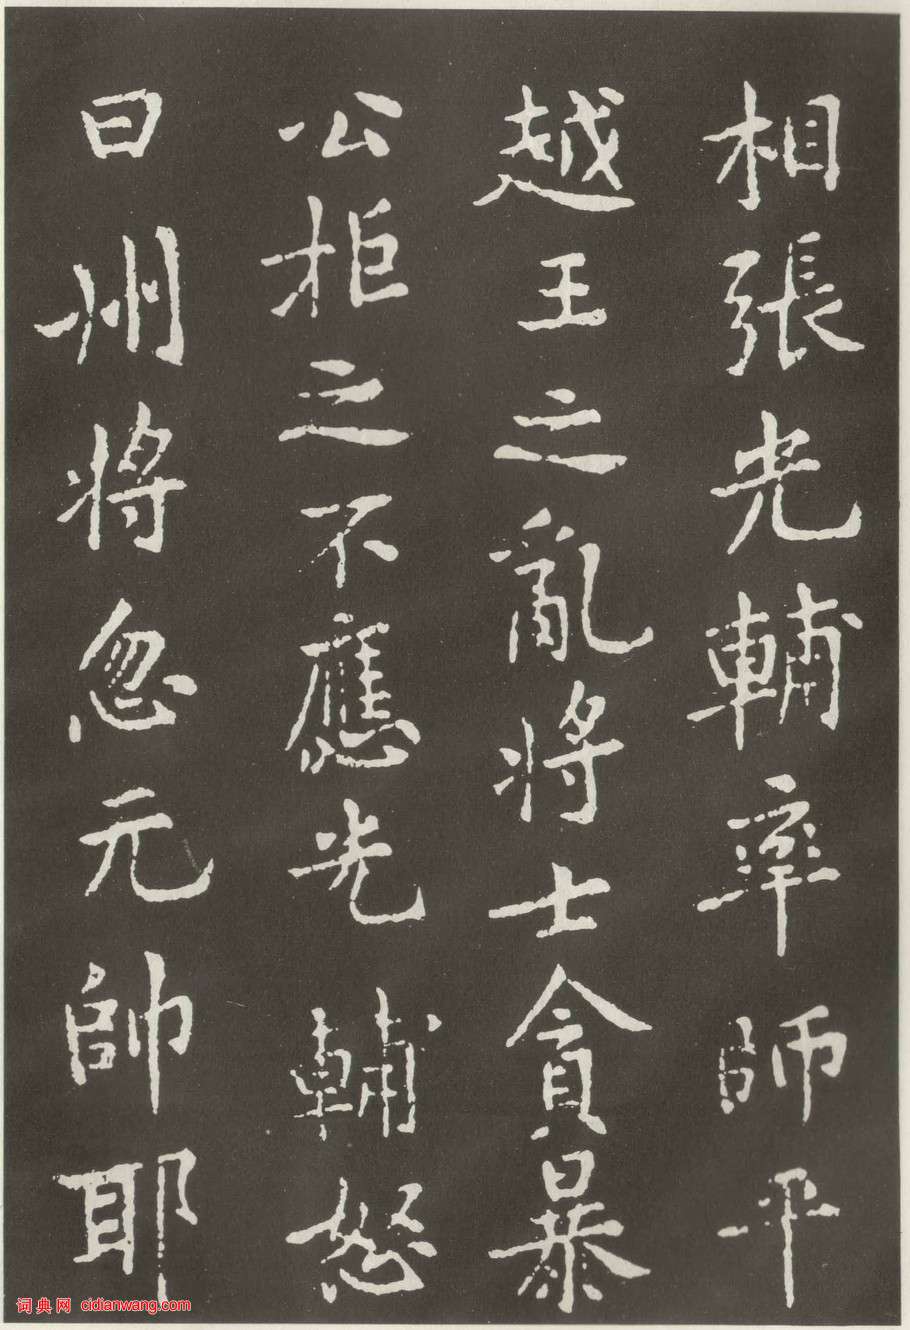 相張光輔率師平
越王之亂將士貪暴
公拒之不應光輔怒
曰州將忽元帥耶
词典网 cidianwang.com